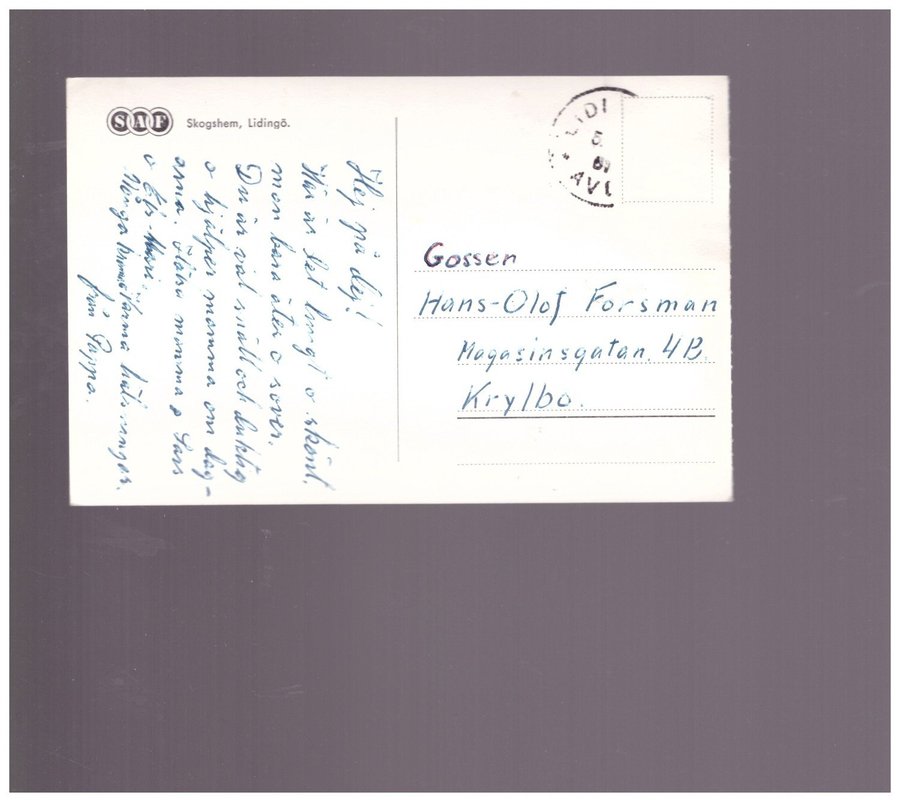 SAF
Skogshem, Lidingö.
Hej på dej!
Här är det lungt o skönt,
man bara äter o sover.
Du är väl snäll och duktig
o hjälper mamma om dag-
arna. Hälsa mamma o Lars
o
många hälsningar.
från Pappa.
LIDI
5.
6
AVI
Gossen
Hans-Olof Forsman
Magasinsgatan. 4B.
Krylbo.